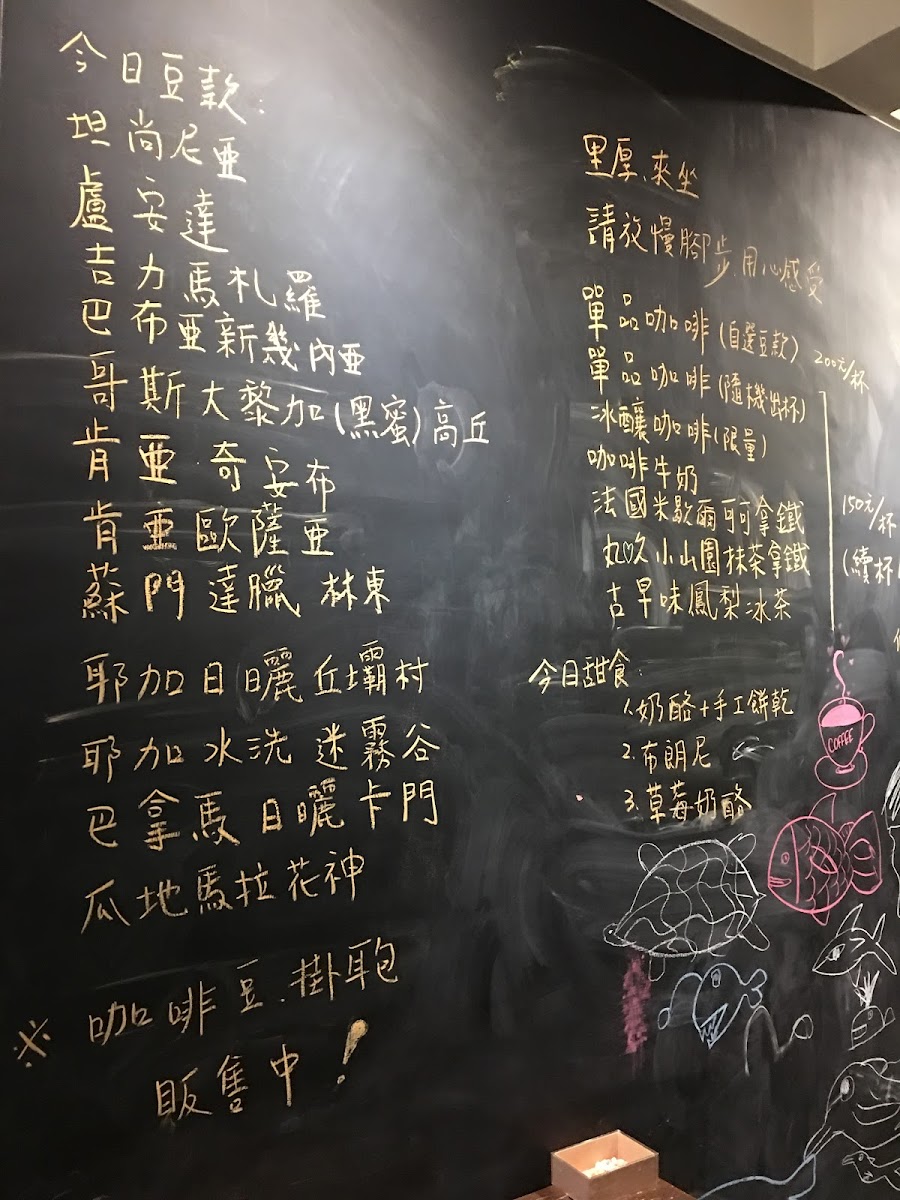 今日豆款:
坦尚尼亞
盧安達
吉力馬札羅
巴布亞新幾內亞
哥斯大黎加(黑蜜)高丘
肯亞 奇安布
肯亞歐薩亞
蘇門達臘 林東
耶加日曬丘壩村
耶加水洗 迷霧谷
巴拿馬日曬卡門
瓜地馬拉花神
※ 咖啡豆.掛耳包
販售中!
里厚、來坐
請放慢腳步、用心感受
單品咖啡(自選豆款) 200元/杯
單品咖啡(隨機出杯)
冰釀咖啡(限量)
咖啡牛奶
法國米歇爾可可拿鐵
丸久小山園抹茶拿鐵
古早味鳳梨冰茶
150元/杯
(續杯
今日甜食:
1.奶酪+手工餅乾
2.布朗尼
3.草莓奶酪
COFFEE